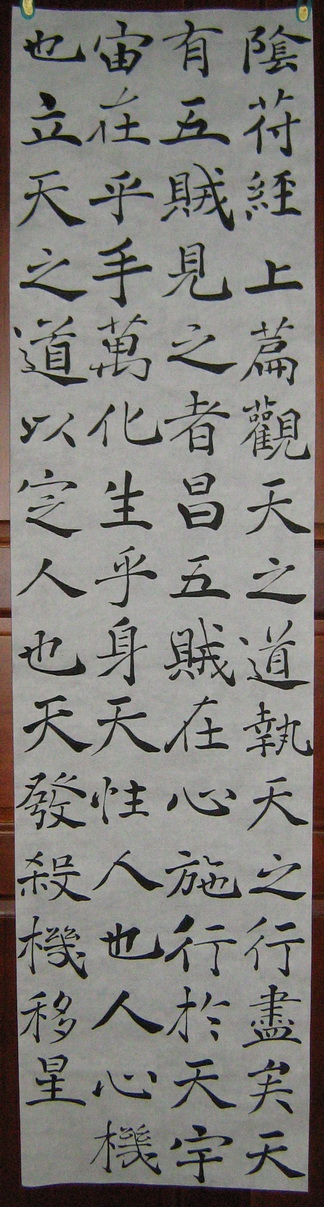 陰苻經上篇觀天之道執天之行盡矣天
有五賊見之者昌五賊在心施行於天宇
宙在乎手萬化生乎身天性人也人心機
也立天之道以定人也天發殺機移星